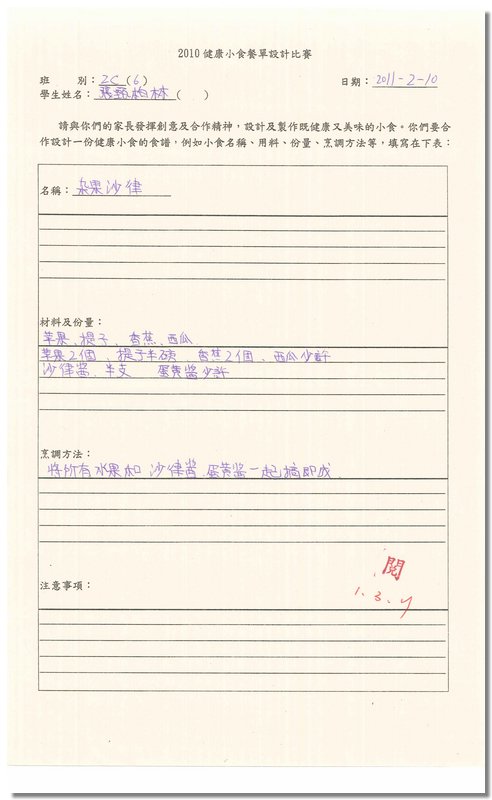 2010 健康小食餐單設計比賽
班 別：2C (6) 日期：2011-2-10
學生姓名： 柏林 ( )
請與你們的家長發揮創意及合作精神，設計及製作既健康又美味的小食。你們要合
作設計一份健康小食的食譜，例如小食名稱、用料、份量、烹調方法等，填寫在下表：
名稱：杂果沙律
材料及份量：
苹果、提子、香蕉、西瓜
苹果2個、提子半磅、香蕉2個、西瓜少許
沙律醬、半支 蛋黄醬少許
烹調方法：
將所有水果和 沙律醬、蛋黄醬一起搞即成、
閱
1.3.
注意事項：